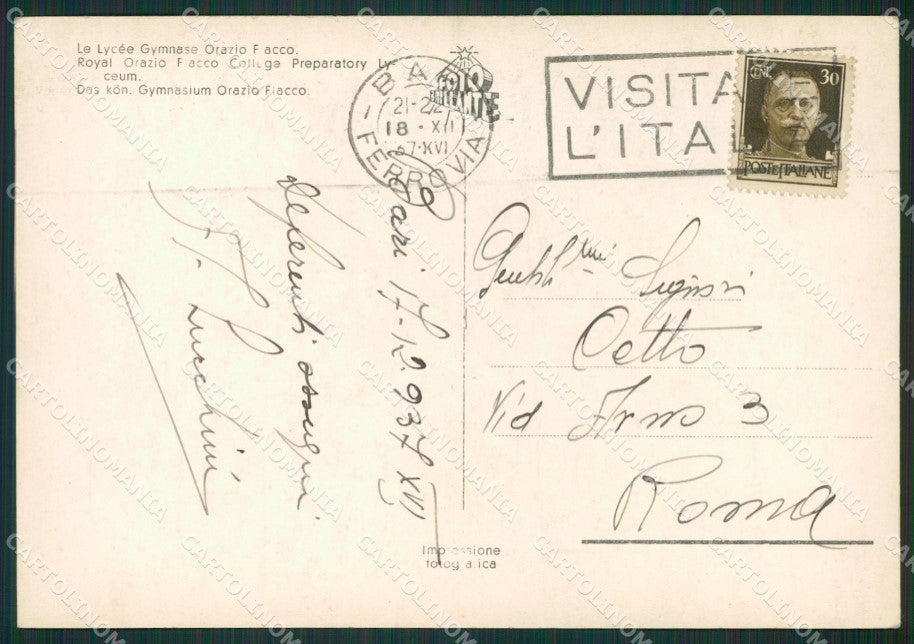 Le Lycée Gymnase Orazio Flacco.
Royal Orazio Flacco College Preparatory Ly-
ceum.
Das kön. Gymnasium Orazio Flacco.
BARI
FERROVIA
21-22
18 · XII
37·XVI
VISITA
L'ITALIA
CENT. 30
POSTE ITALIANE
Bari 17-12 937 XVI
Deferenti ossequi
Lucchini
Gentil.mi Signori
Cetto
Via Arno 3
Roma
Impressione
fotografica
CARTOLINOMANIA